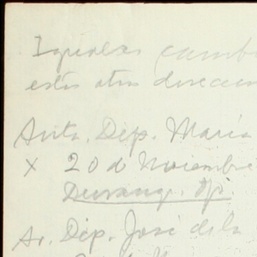 Iguales camb
estas otra direccion
Srita. Dip. María
X 20 de Noviembre
Durango, Dgo.
Sr. Dip. José de la